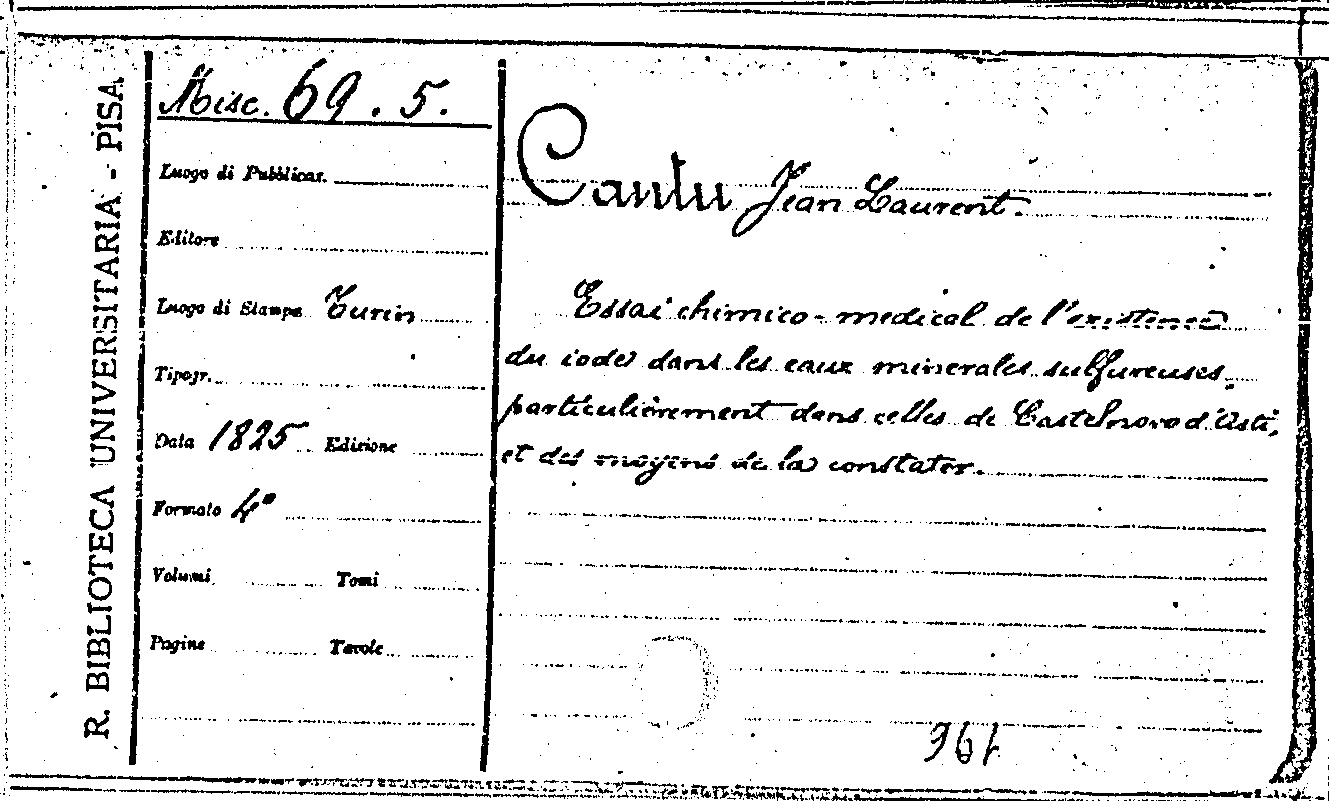 R. BIBLIOTECA UNIVERSITARIA - PISA
Misc. 69. 5.
Luogo di Pubblicaz.
Editore
Luogo di Stampa Turin
Tipogr.
Data 1825 Edizione
Formato 4°
Volumi Tomi
Pagine Tavole
Cantu Jean Laurent.
Essai chimico-medical de l'existence
du iode dans les eaux minerales sulfureuses,
particulièrement dans celles de Castelnovo d'Asti,
et des moyens de la constater.
961